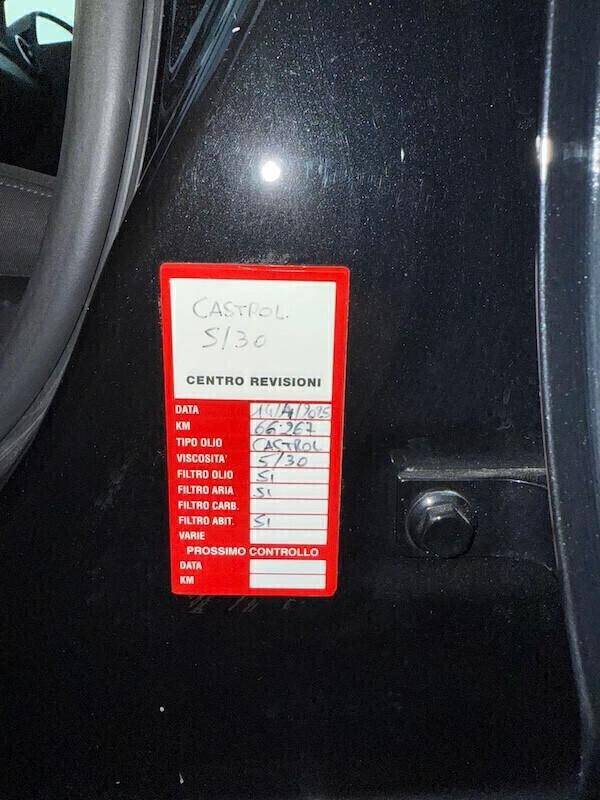 CASTROL.
5/30
CENTRO REVISIONI
DATA 14/4/2025
KM 66.267
TIPO OLIO CASTROL
VISCOSITA' 5/30
FILTRO OLIO SI
FILTRO ARIA SI
FILTRO CARB.
FILTRO ABIT. SI
VARIE
PROSSIMO CONTROLLO
DATA
KM